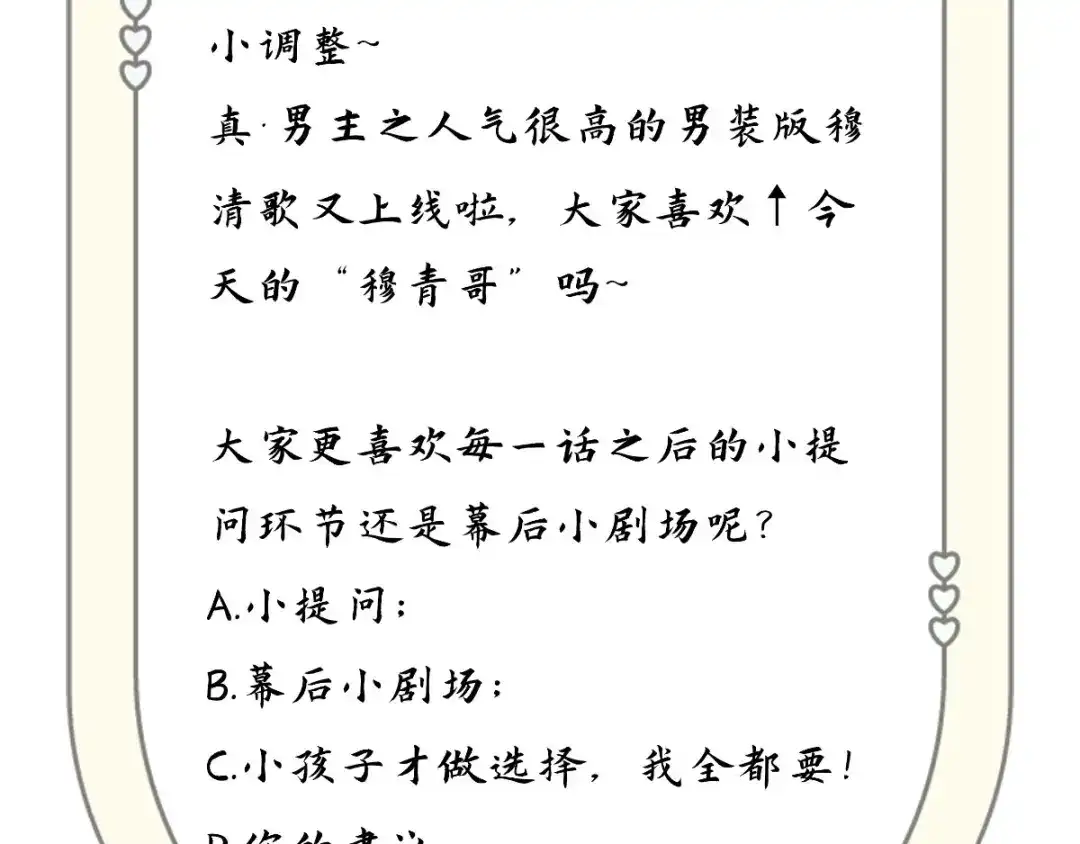 小调整~
真·男主之人气很高的男装版穆
清歌又上线啦，大家喜欢↑今
天的“穆青哥”吗~
大家更喜欢每一话之后的小提
问环节还是幕后小剧场呢？
A.小提问；
B.幕后小剧场；
C.小孩子才做选择，我全都要！
D.你的建议